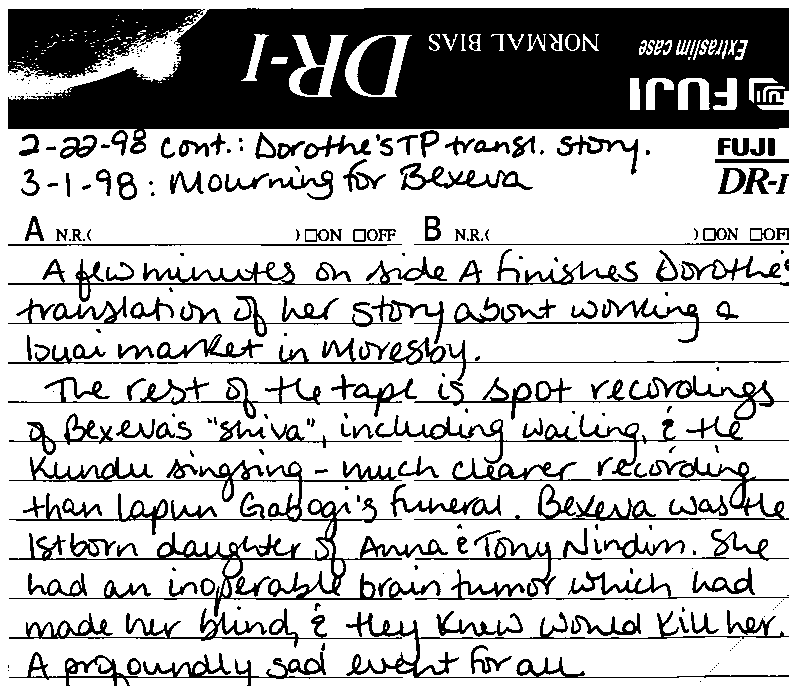 DR-I NORMAL BIAS Extraslim case
FUJI
2-22-98 cont.: Dorothe's TP transl. story.
3-1-98: Mourning for Bexeva
FUJI
DR-I
A N.R.( ) □ON □OFF B N.R.( ) □ON □OFF
A few minutes on side A finishes Dorothe's
translation of her story about working a
buai market in Moresby.
The rest of the tape is spot recordings
of Bexeva's "shiva", including wailing, & the
Kundu singsing - much clearer recording
than lapun Gabogi's funeral. Bexeva was the
1stborn daughter of Anna & Tony Nindim. She
had an inoperable brain tumor which had
made her blind, & they knew would kill her.
A profoundly sad event for all.